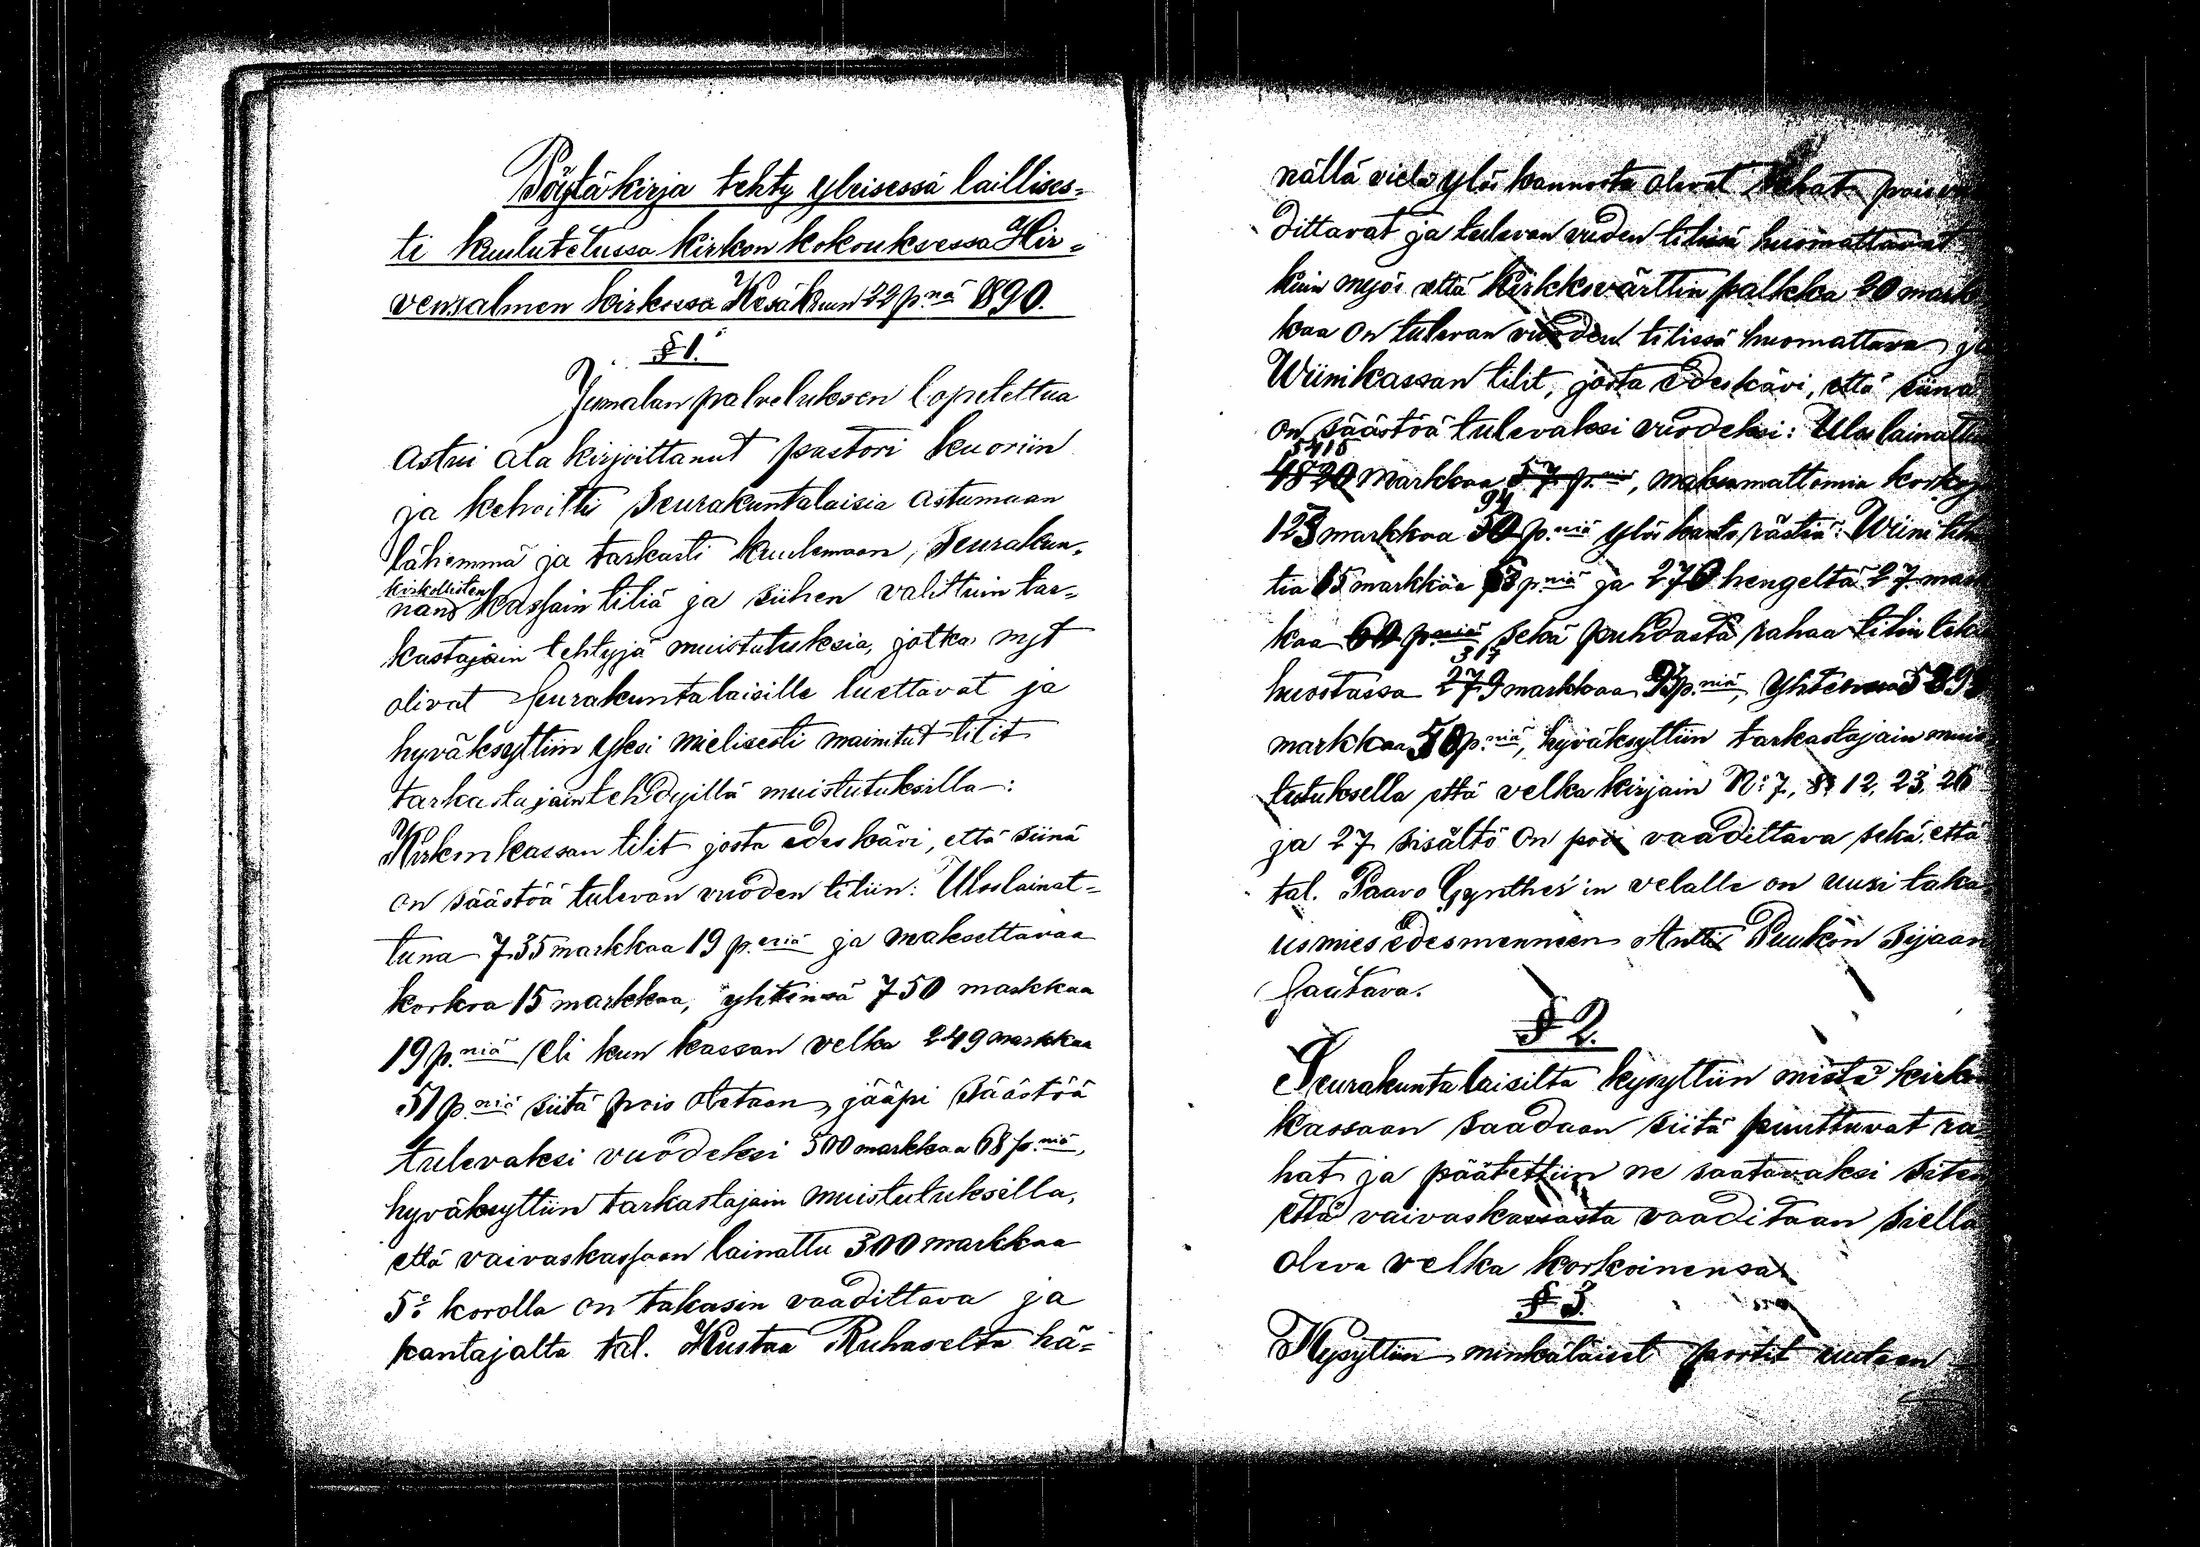 Pöytäkirja tehty yleisessä laillises-
ti kuulutetussa kirkon kokouksessa Hir-
vensalmen kirkossa Kesäkuun 22 p:nä 1890.
§ 1.
Jumalan palveluksen lopetettua
astui ala kirjoittanut pastori kuoriin
ja kehoitti seurakuntalaisia astumaan
lähemmä ja tarkasti kuulemaan, seurakun-
kirkollisten
nans kassain tiliä ja siihen valittuin tar-
kastajain tehtyjä muistutuksia, jotka nyt
olivat seurakuntalaisille luettavat ja
hyväksyttiin yksi mielisesti mainitut tilit
tarkastajain tehdyillä muistutuksilla:
Kirkonkassan tilit josta edeskävi, että siinä
on säästöä tulevan vuoden tiliin: Uloslainat-
tuna 735 markkaa 19 p:niä ja maksettavaa
korkoa 15 markkaa, yhteensä 750 markkaa
19 p:niä eli kun kassan velka 249 markkaa
51 p:niä siitä pois otetaan, jääpi säästöä
tulevaksi vuodeksi 500 markkaa 68 p:niä,
hyväksyttiin tarkastajain muistutuksella,
että vaivaskassaan lainattu 300 markkaa
5% korolla on takasin vaadittava ja
kantajalta tal. Kustaa Ruhaselta hä-
nällä vielä ylös kannosta olevat rahat pois
dittavat ja tulevan vuden tilissä huomattavat
kuin myös että kirkkovärttin palkka 20 mark
kaa on tulevan vuoden tilissä huomattava ja
Wiinikassan tilit, josta edeskävi, että siinä
on säästöä tulevaksi vuodeksi: Ulos lainattu
5415
4820 markkaa 57 p:niä, maksamattomia korkoja
94
123 markkaa 50 p:niä ylös kanto rästiä: Wiini
tia 15 markkaa 53 p:niä ja 270 hengeltä 27 mark
kaa 60 p:niä sekä puhdasta rahaa tilin teki
317
huostassa 279 markkaa p:niä, yhteensä
markkaa p:niä, hyväksyttiin tarkastajain muis
tutuksella että velka kirjain N:o 7, 8, 12, 23, 26
ja 27 sisältö on pois vaadittava sekä että
tal. Paavo Gynther'in velalle on uusi taka
usmies edesmenneen Antti Puukon sijaan
saatava.
§ 2.
Seurakuntalaisilta kysyttiin mistä kirkon
kassaan saadaan siitä puuttuvat ra
hat ja päätettiin ne saatavaksi siten
että vaivaskassasta vaaditaan siellä
oleva velka korkoinensa
§ 3.
Kysyttiin minkälaiset portit uuteen